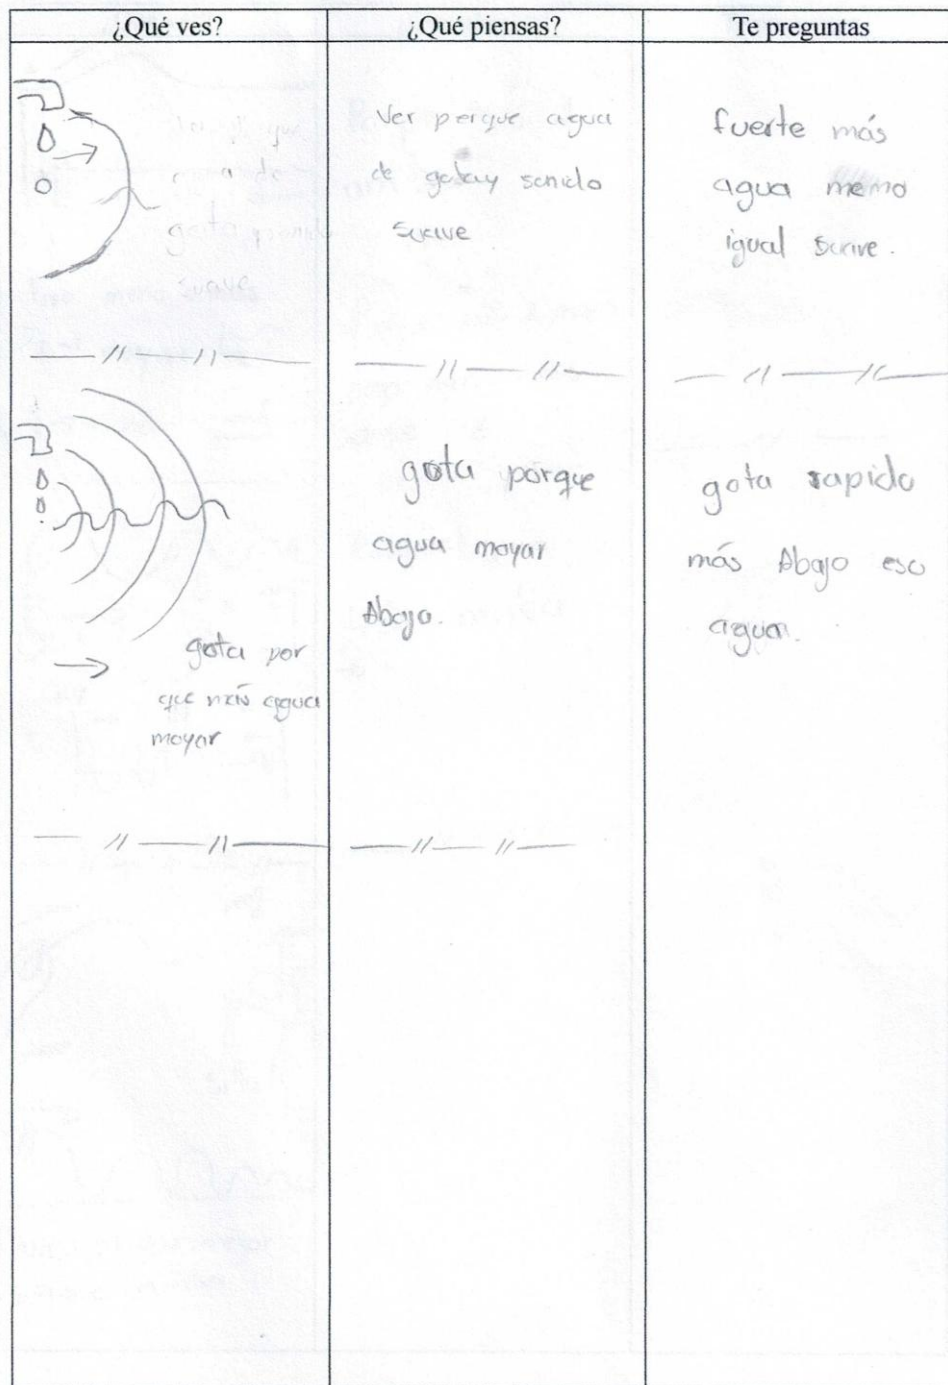 ¿Qué ves?
¿Qué piensas?
Te preguntas
gota
suave
Ver porque agua
de gota y sonido
suave
fuerte más
agua memo
igual suave.
gota por
que más agua
mayar
gota porque
agua mayar
Abajo.
gota rapido
más Abajo eso
agua.